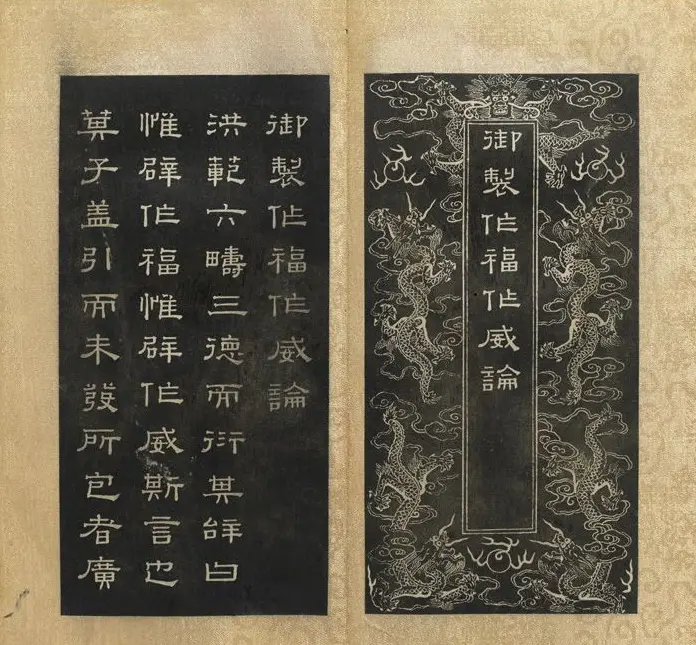 御製作福作威論
御製作福作威論
洪範六疇三德而衍其辝曰
惟辟作福惟辟作威斯言也
箕子盖引而未發所包者廣